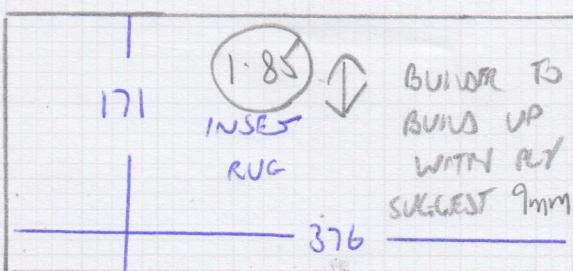 171
1.85
INSET
RUG
BUILDER TO
BUILD UP
WITH PLY
SUGGEST 9mm
376